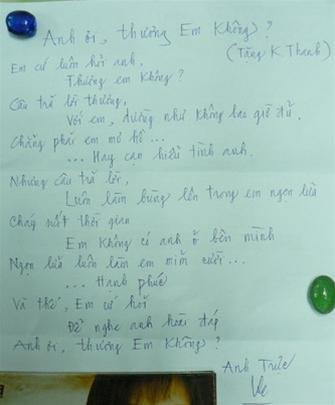 Anh ơi, thương Em Không?
(Tăng K Thanh)
Em cứ luôn hỏi anh,
Thương em Không?
Câu trả lời thương,
Với em, dường như không bao giờ đủ.
Chẳng phải em mơ hồ...
... Hay cạn hiểu tình anh.
Nhưng câu trả lời,
Luôn làm bùng lên trong em ngọn lửa
Cháy suốt thời gian
Em không có anh ở bên mình
Ngọn lửa luôn làm em mỉm cười...
... Hạnh phúc
Và thế, Em cứ hỏi
Để nghe anh hoài đáp
Anh ơi, thương Em Không?
Anh Trúc